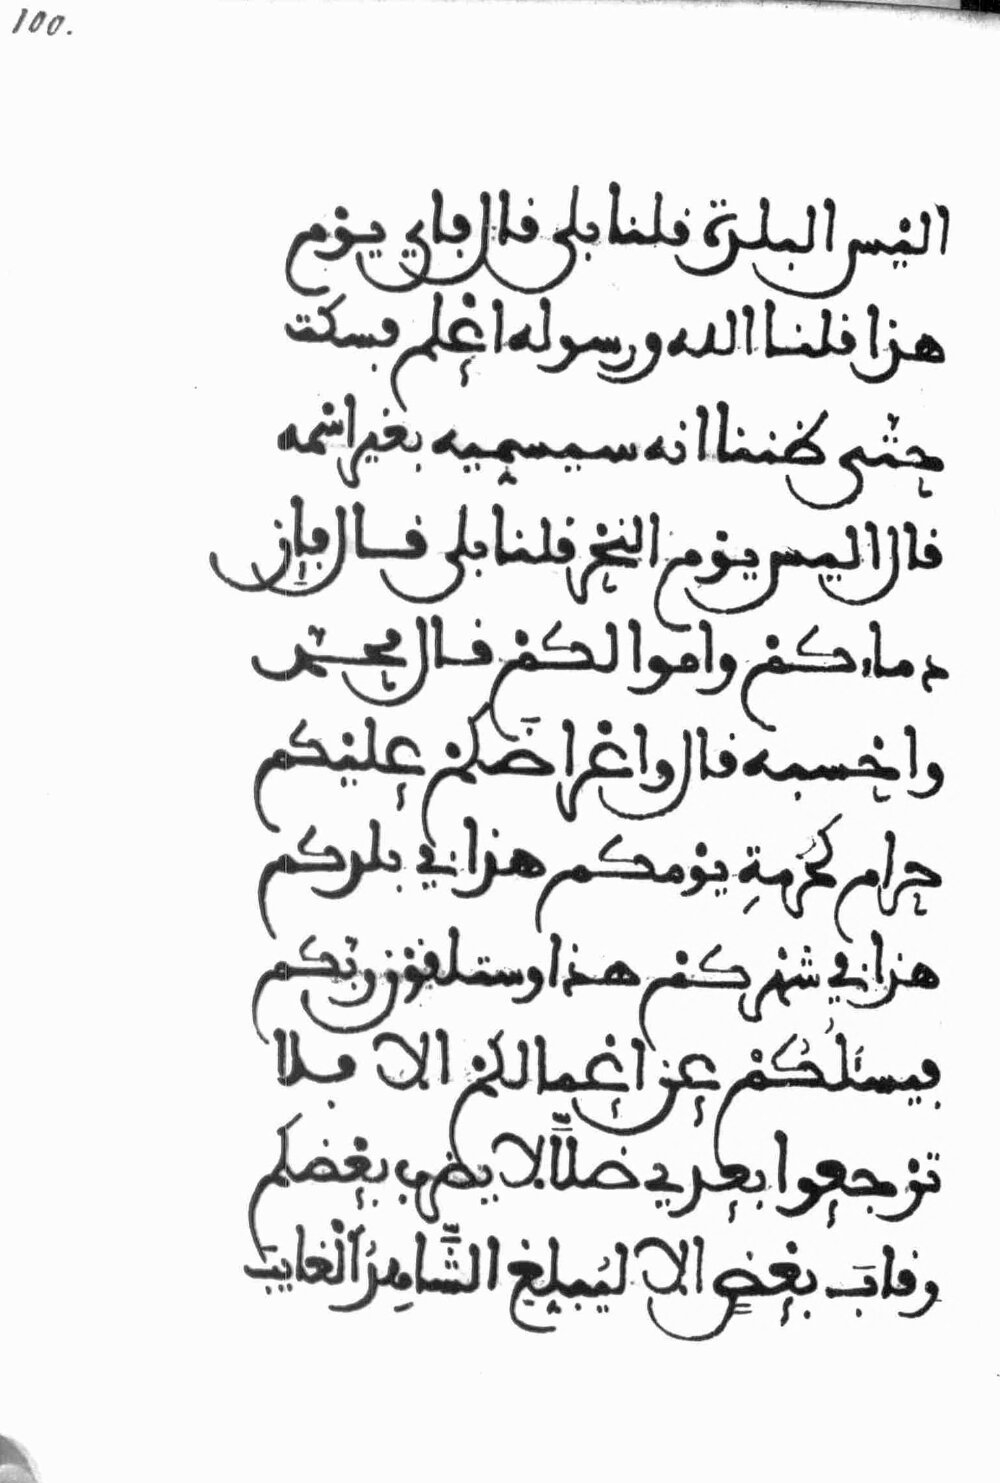 100.
اليْس البلدة فلنا بلى فال فاي يوْم
هذا فلنا الله ورسوله اعْلم فسكت
حتّى ظننا انه سيسميه بغير اسْمه
فال اليس يوْم النحْر فلنا بلى فال فإن
دماءكمْ واموالكمْ فال محمّد
واحسبه فال واعْراضَكمْ عليْكم
حرام كحُرْمةِ يوْمكم هذا في بلدكم
هذا في شهْركمْ هذا وستلفوْن ربّكم
فيسـَٔلُكُمْ عن اعْمالكمْ الا فلا
ترْجعوا بعدي ضلَّالا يضرب بعْضكم
رفابَ بعْضٍ الا ليُبلِغ الشَّاهِدُ الْغايبَ